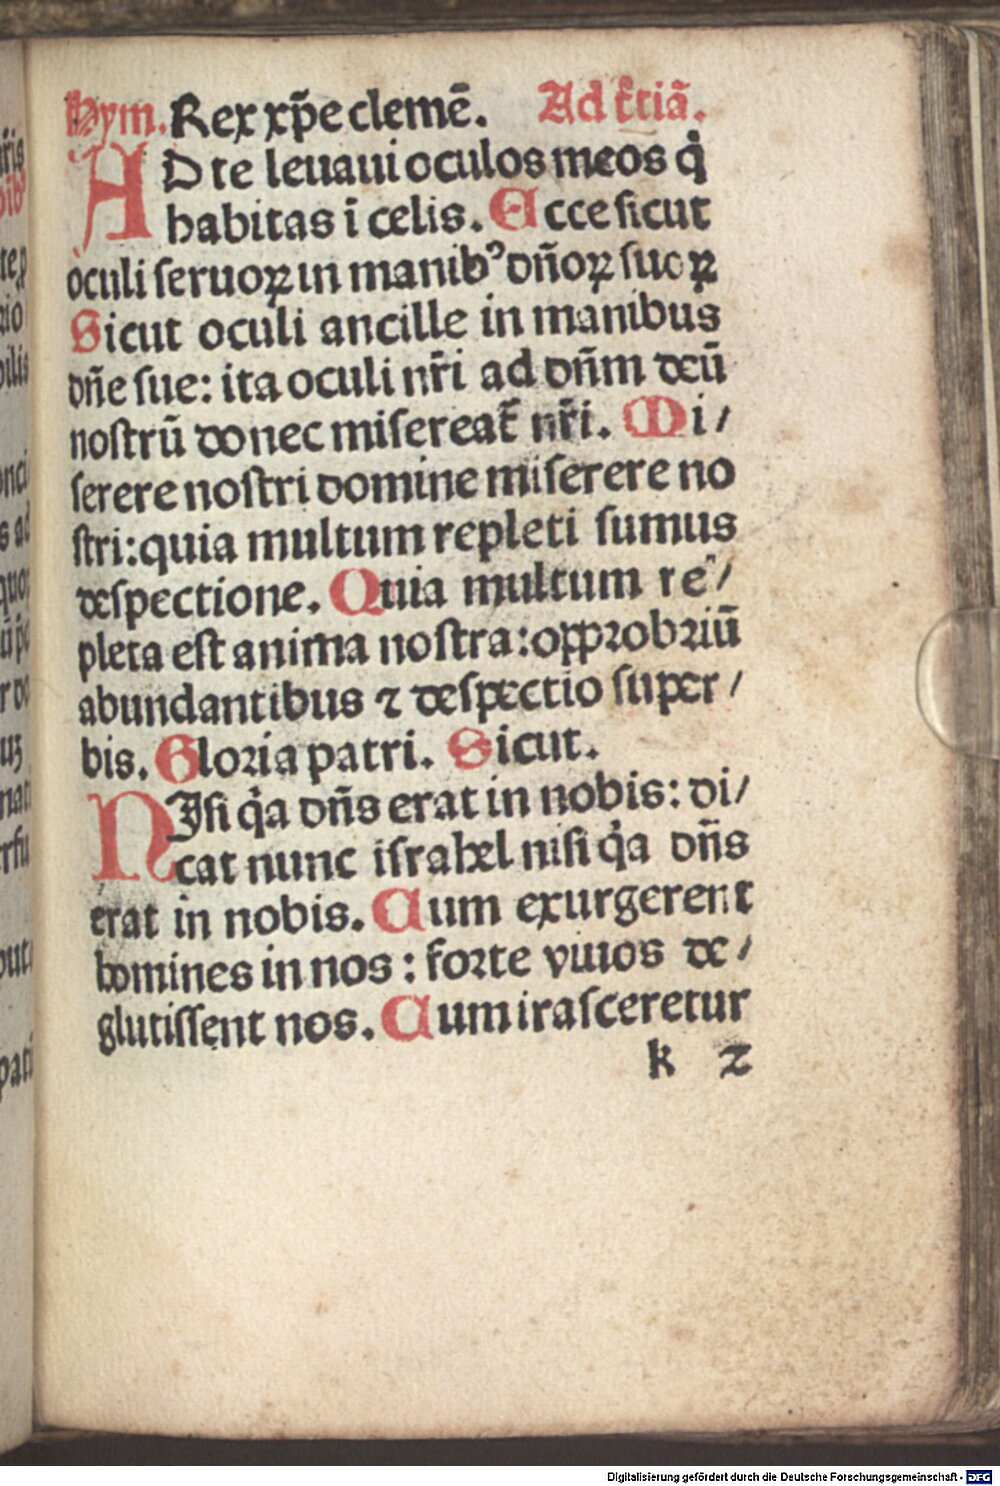 Hym. Rex xp̄e clemē. Ad t̄ciā.
AD te leuaui oculos meos q̇
habitas ī celis. Ecce ſicut
oculi ſeruoꝝ in manibꝰ dn̄oꝝ ſuoꝝ
Sicut oculi ancille in manibus
dn̄e ſue: ita oculi nr̄i ad dn̄m deū
noſtrū donec miſereat̄ nr̄i. Mi/
ſerere noſtri domine miſerere no
ſtri: quia multum repleti ſumus
deſpectione. Quia multum re/
pleta eſt anima noſtra: opprobꝛiū
abundantibus ⁊ deſpectio ſuper/
bis. Gloꝛia patri. Sicut.
NIſi q̇a dn̄s erat in nobis: di/
cat nunc iſrahel niſi q̇a dn̄s
erat in nobis. Cum exurgerent
homines in nos: foꝛte viuos de/
glutiſſent nos. Cum iraſceretur
k 2
Digitalisierung gefördert durch die Deutsche Forschungsgemeinschaft - DFG